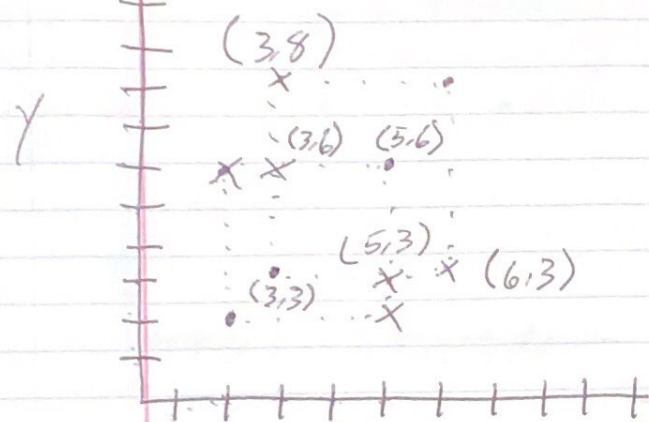 (3,8)
Y
(3,6) (5,6)
(5,3)
(6,3)
(3,3)